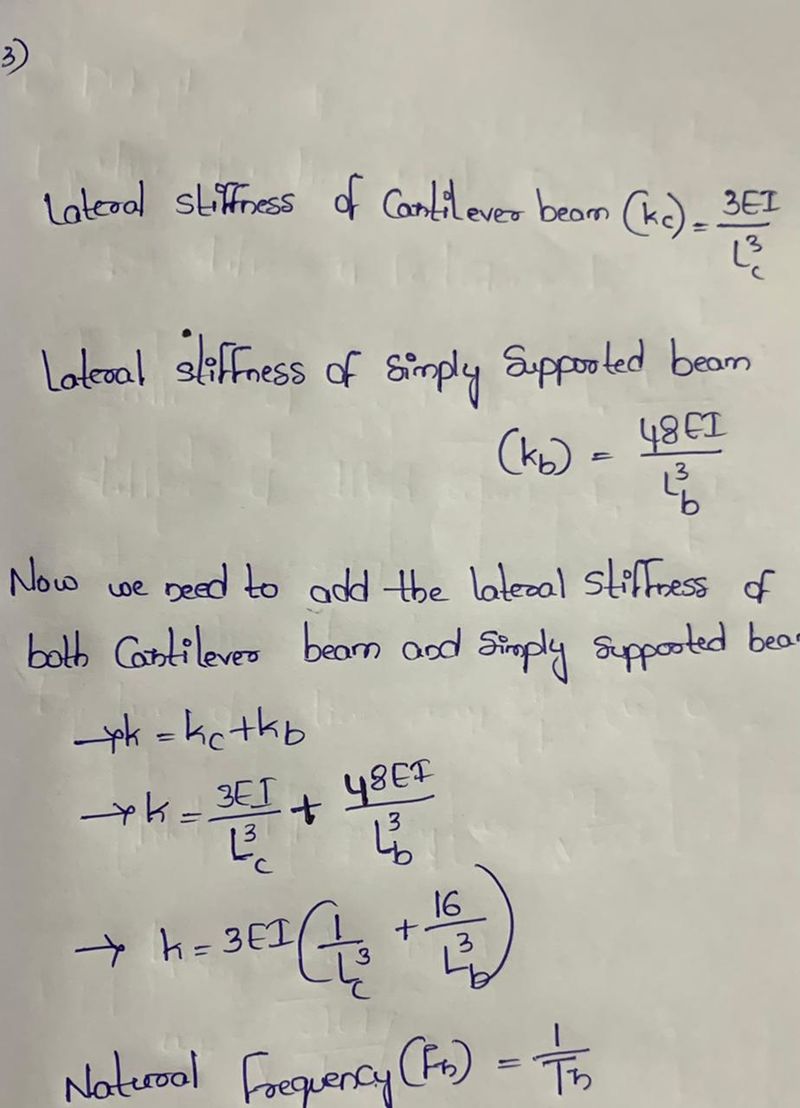 3)
Lateral stiffness of Cantilever beam (kc) = 3EI / L³c
Lateral stiffness of Simply Supported beam
(kb) = 48EI / L³b
Now we need to add the lateral Stiffness of
both Cantilever beam and Simply Supported bea
→ k = kc + kb
→ k = 3EI / L³c + 48EI / L³b
→ k = 3EI (1 / L³c + 16 / L³b)
Natural Frequency (Fn) = 1 / Tn